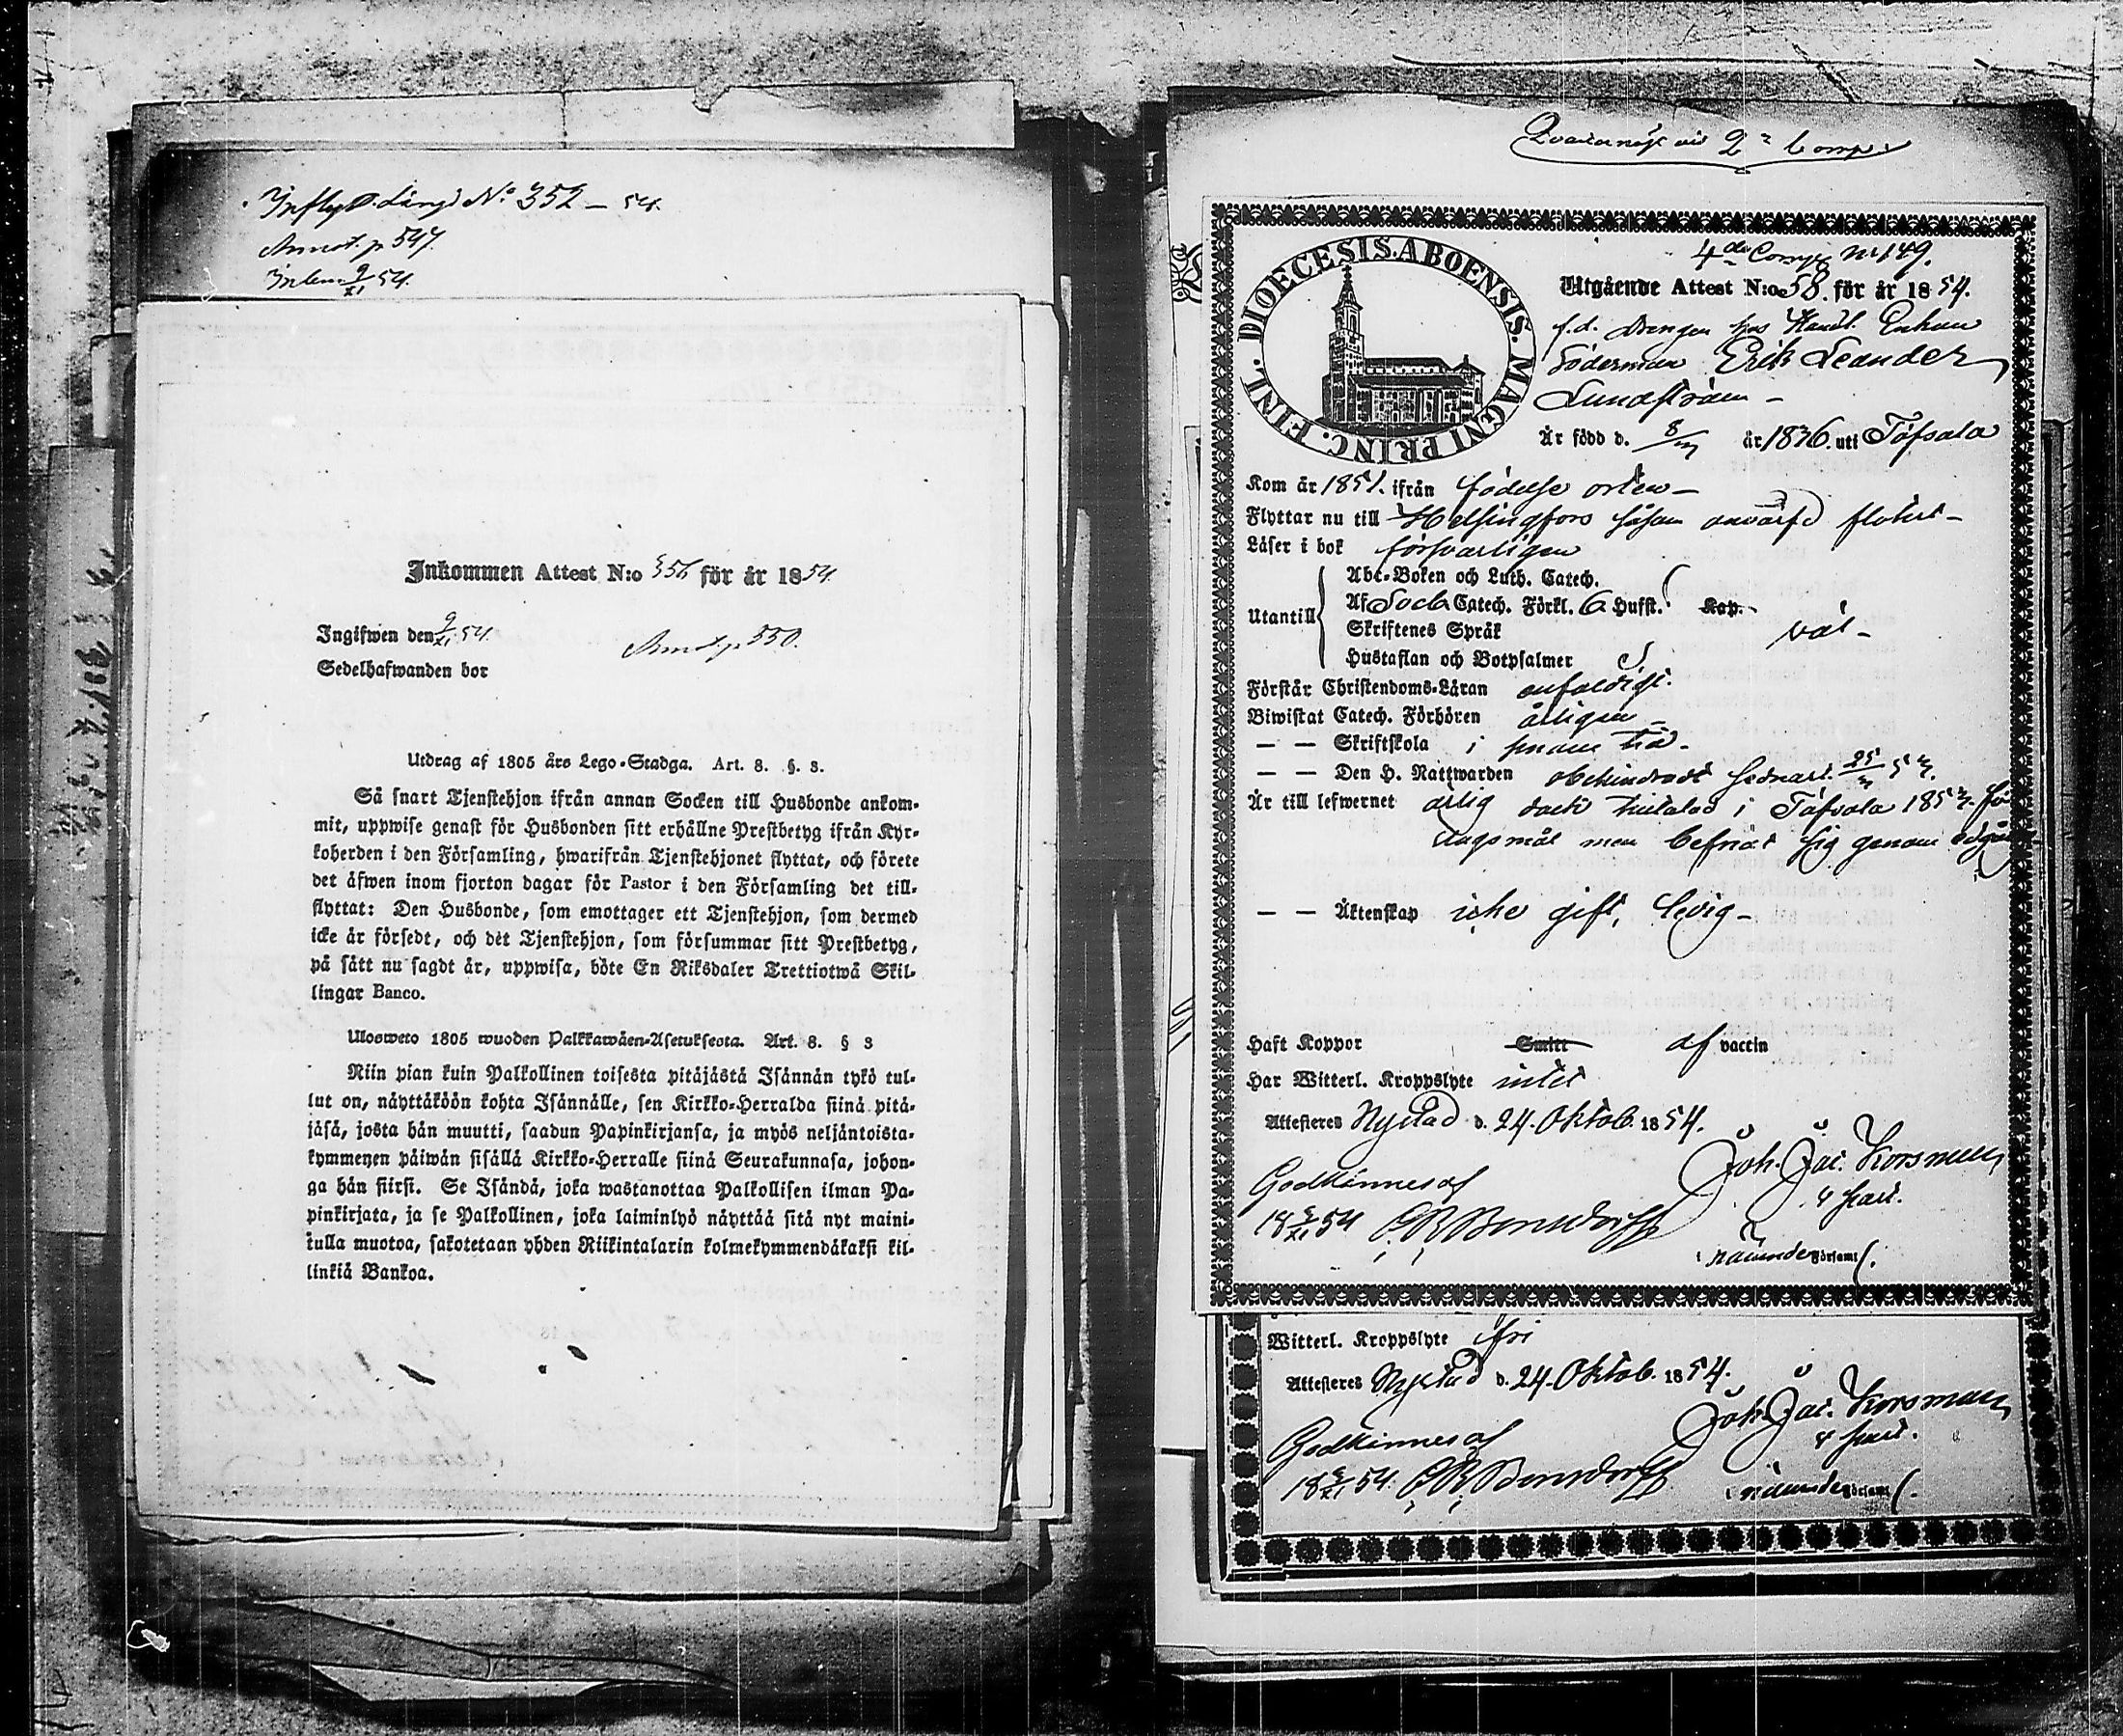 Inflytt. Längd No 352 – 54.
Annot. p 547.
Inlem 9/XI 54.
Inkommen Attest N:o 356 för år 1854.
Ingifwen den 9/XI 54.
Annot. p. 550.
Sedelhafwanden bor
Utdrag af 1805 års Lego-Stadga. Art. 8. §. 3.
Så snart Tjenstehjon ifrån annan Socken till Husbonde ankom-
mit, uppwise genast för Husbonden sitt erhållne Prestbetyg ifrån Kyr-
koherden i den Församling, hwarifrån Tjenstehjonet flyttat, och förete
det äfwen inom fjorton dagar för Pastor i den Församling det till-
flyttat: Den Husbonde, som emottager ett Tjenstehjon, som dermed
icke är försedt, och det Tjenstehjon, som försummar sitt Prestbetyg,
på sätt nu sagdt är, uppwisa, böte En Riksdaler Trettiotwå Skil-
lingar Banco.
Ulosweto 1805 wuoden Palkkawäen-Asetuksesta. Art. 8. § 3
Niin pian kuin Palkollinen toisesta pitäjästä Isännän tykö tul-
lut on, näyttäköön kohta Isännälle, sen Kirkko-Herralda siinä pitä-
jäsä, josta hän muutti, saadun Papinkirjansa, ja myös neljäntoista-
kymmenen päiwän sisällä Kirkko-Herralle siinä Seurakunnasa, johon-
ga hän siirsi. Se Isändä, joka wastanottaa Palkollisen ilman Pa-
pinkirjata, ja se Palkollinen, joka laiminlyö näyttää sitä nyt maini-
tulla muotoa, sakotetaan yhden Riikintalarin kolmekymmendäkaksi kil-
linkiä Bankoa.
2 Comp.
DIOECESIS. ABOENSIS. MAGNI PRINC. FINL.
4de Comp. No 149.
Utgående Attest N:o 58. för år 1854.
f.d. Drengen hos Handl. Enkan
Söderman Erik Leander
Lundström –
Är född d. 8/ år 1836. uti Töfsala
Kom år 1851. ifrån födelse orten –
Flyttar nu till Helsingfors såsom anvärfd flotist –
Läser i bok försvarligen
Utantill
Abc-Boken och Luth. Catech.
Af Catech. Förkl. 6 Hufst. Kap.
Skriftenes Språk
väl –
Hustaflan och Botpsalmer
Förstår Christendoms-Läran enfaldigt.
Biwistat Catech. Förhören årligen –
— — Skriftskola i sinom tid.
— — Den H. Nattwarden obehindradt sednast 25/
Är till lefwernet ärlig dock tilltalad i Töfsala 185 för
lägsmål men befriat sig genom edgång.
— — Äktenskap icke gift, ledig –
Haft Koppor Smitt af vaccin
Har Witterl. Kroppslyte intet
Attesteras Nystad d. 24. Oktob. 1854.
Joh. Jac. Korsman
v. past.
Godkännes af
18 54 Bonsdorff
i nämnde Församl.
Witterl. Kroppslyte fri
Attesteras Nystad d. 24. Oktob. 1854.
Joh. Jac. Korsman
v. past.
Godkännes af
18 54. Bonsdorff
i nämnde Församl.